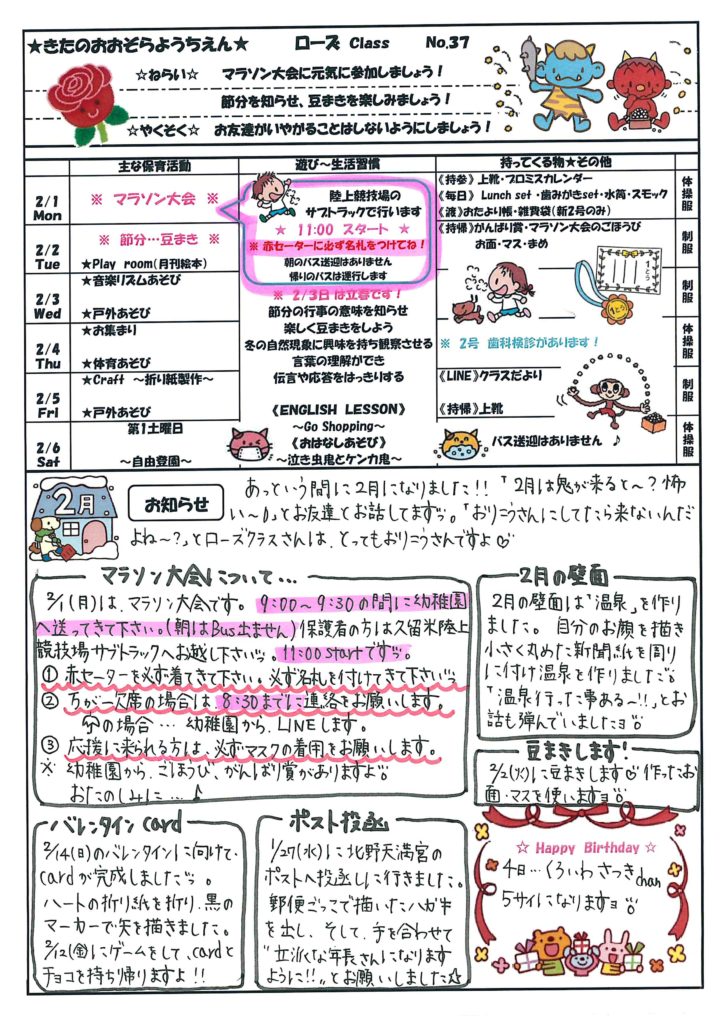 ★きたのおおぞらようちえん★ ローズ Class No.37
☆ねらい☆ マラソン大会に元気に参加しましょう！
節分を知らせ、豆まきを楽しみましょう！
☆やくそく☆ お友達がいやがることはしないようにしましょう！
主な保育活動 遊び～生活習慣 持ってくる物★その他
2/1 Mon
※ マラソン大会 ※
陸上競技場の
サブトラックで行います
☆ 11:00 スタート ☆
※ 赤セーターに必ず名札をつけてね！
朝のバス送迎はありません
帰りのバスは運行します
《持参》上靴・プロミスカレンダー
《毎日》 Lunch set ・歯みがきset・水筒・スモック
《渡》おたより帳・雑貨袋(新2号のみ)
体操服
2/2 Tue
※ 節分…豆まき ※
★Play room(月刊絵本)
《持帰》がんばり賞・マラソン大会のごほうび
お面・マス・まめ
制服
2/3 Wed
★音楽リズムあそび
★戸外あそび
※ 2/3日 は立春です！
節分の行事の意味を知らせ
楽しく豆まきをしよう
冬の自然現象に興味を持ち観察させる
言葉の理解ができ
伝言や応答をはっきりする
制服
2/4 Thu
★お集まり
★体育あそび
※ 2号 歯科検診があります！
体操服
2/5 Fri
★Craft ～折り紙製作～
★戸外あそび
《ENGLISH LESSON》
～Go Shopping～
《LINE》クラスだより
《持帰》上靴
制服
2/6 Sat
第1土曜日
～自由登園～
《おはなしあそび》
～泣き虫鬼とケンカ鬼～
バス送迎はありません ♪
体操服
1とう
2月
お知らせ
あっという間に2月になりました!! 「2月は鬼が来ると～？怖
い～♪」とお友達とお話してますッ。「おりこうさんにしてたら来ないんだ
よね～？」とローズクラスさんは、とってもおりこうさんですよ♡
マラソン大会について…
2/1(月)は、マラソン大会です。 9:00～9:30の間に幼稚園
へ送ってきて下さい。(朝はBus出ません)保護者の方は久留米陸上
競技場サブトラックへお越し下さいッ。11:00startですッ。
① 赤セーターを必ず着てきて下さい。必ず名札を付けてきて下さいッ
② 万が一欠席の場合は 8:30までに連絡をお願いします。
の場合… 幼稚園から、LINEします。
③ 応援に来られる方は、必ずマスクの着用をお願いします。
※ 幼稚園から、ごほうび、がんばり賞がありますよ
おたのしみに…♪
2月の壁面
2月の壁面は「温泉」を作り
ました。 自分のお顔を描き
小さく丸めた新聞紙を周り
に付け温泉を作りました
「温泉行った事ある～!!」とお
話も弾んでいましたヨ
豆まきします！
2/2(火)に豆まきします 作ったお
面・マスを使いますヨ
バレンタイン card
2/14(日)のバレンタインに向けて、
cardが完成しましたッ。
ハートの折り紙を折り、黒の
マーカーで矢を描きました。
2/12(金)にゲームをして、cardと
チョコを持ち帰りますよ!!
ポスト投函
1/27(水)に北野天満宮の
ポストへ投函しに行きました。
郵便ごっこで描いたハガキ
を出し、そして、手を合わせて
"立派な年長さんになります
ように!!"とお願いしました☆
☆ Happy Birthday ☆
4日…くろいわさつきchan
5サイになりますヨ